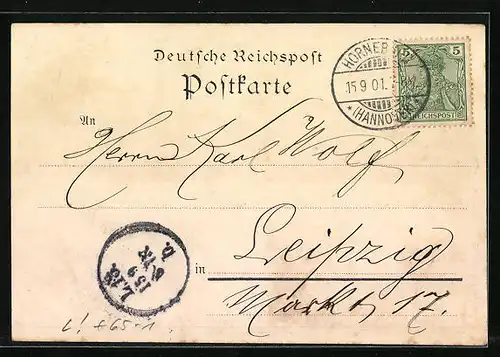 Deutsche Reichspost
Postkarte
HORNEBURG
15 9 01.
* (HANNOVER)
5
REICHSPOST
An
Herrn Karl Wolf
in Leipzig
Markt 17.
L. 13.
15 9